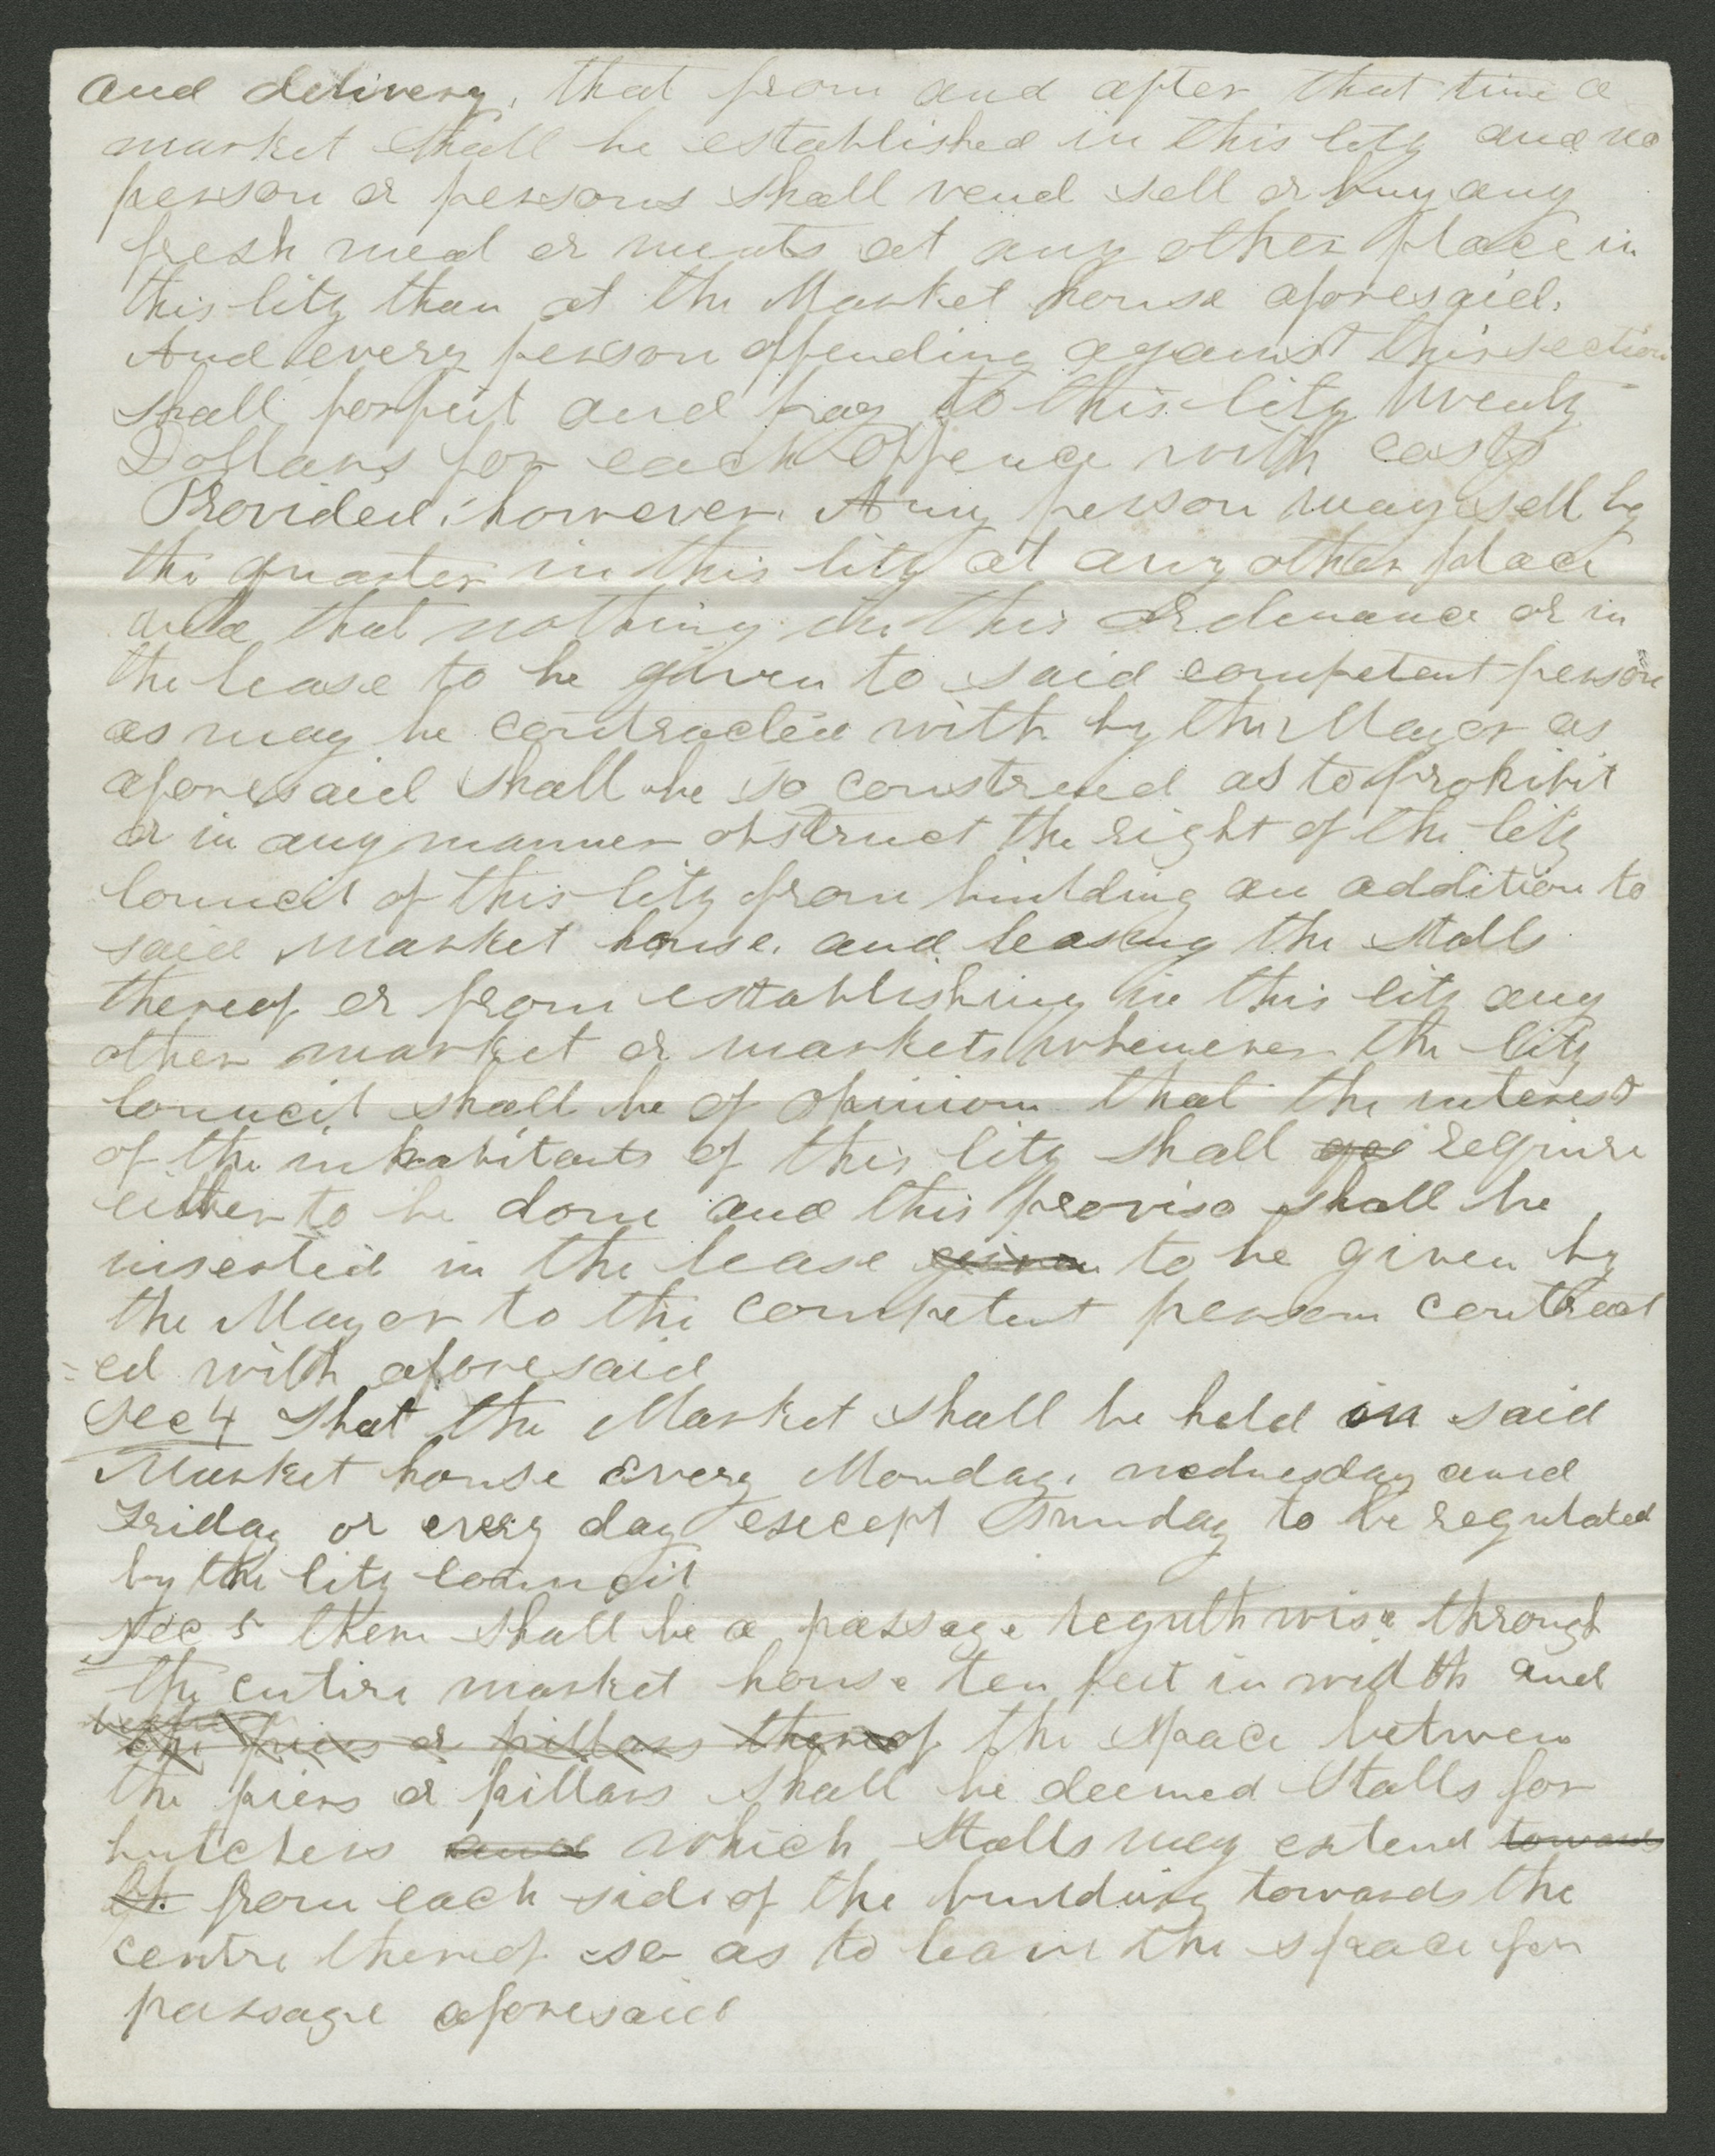 and delivery, that from and after that time a
market shall be established in this City and no
person or persons shall vend sell or buy any
fresh meat or meats at any other place in
this City than at the Market house aforesaid.
And every person offending against this section
shall forfeit and pay to this City twenty
Dollars for each offence with costs
Provided, however. Any person may sell by
the quarter in this City at any other place
and that nothing in this Ordinance or in
the lease to be given to said competent person
as may be contracted with by the Mayor as
aforesaid shall be so construed as to prohibit
or in any manner obstruct the right of the City
Council of this City from building an addition to
said market house. and leasing the Stalls
thereof or from establishing in this City any
other market or markets whenever the City
Council shall be of opinion that the interest
of the inhabitants of this City shall require
either to be done and this proviso shall be
inserted in the lease given to be given by
the Mayor to the competent person contract
=ed with aforesaid
Sec 4 That the Market shall be held in said
Market house every Monday, wednesday and
Friday or every day except Sunday to be regulated
by the City Council
Sec 5 there shall be a passage through
the entire market house ten feet in width and
the piers or pillars thereof the space between
the piers or pillars shall be deemed Stalls for
butchers and which Stalls may extend towards
from each side of the building towards the
centre thereof so as to leave the space for
passage aforesaid